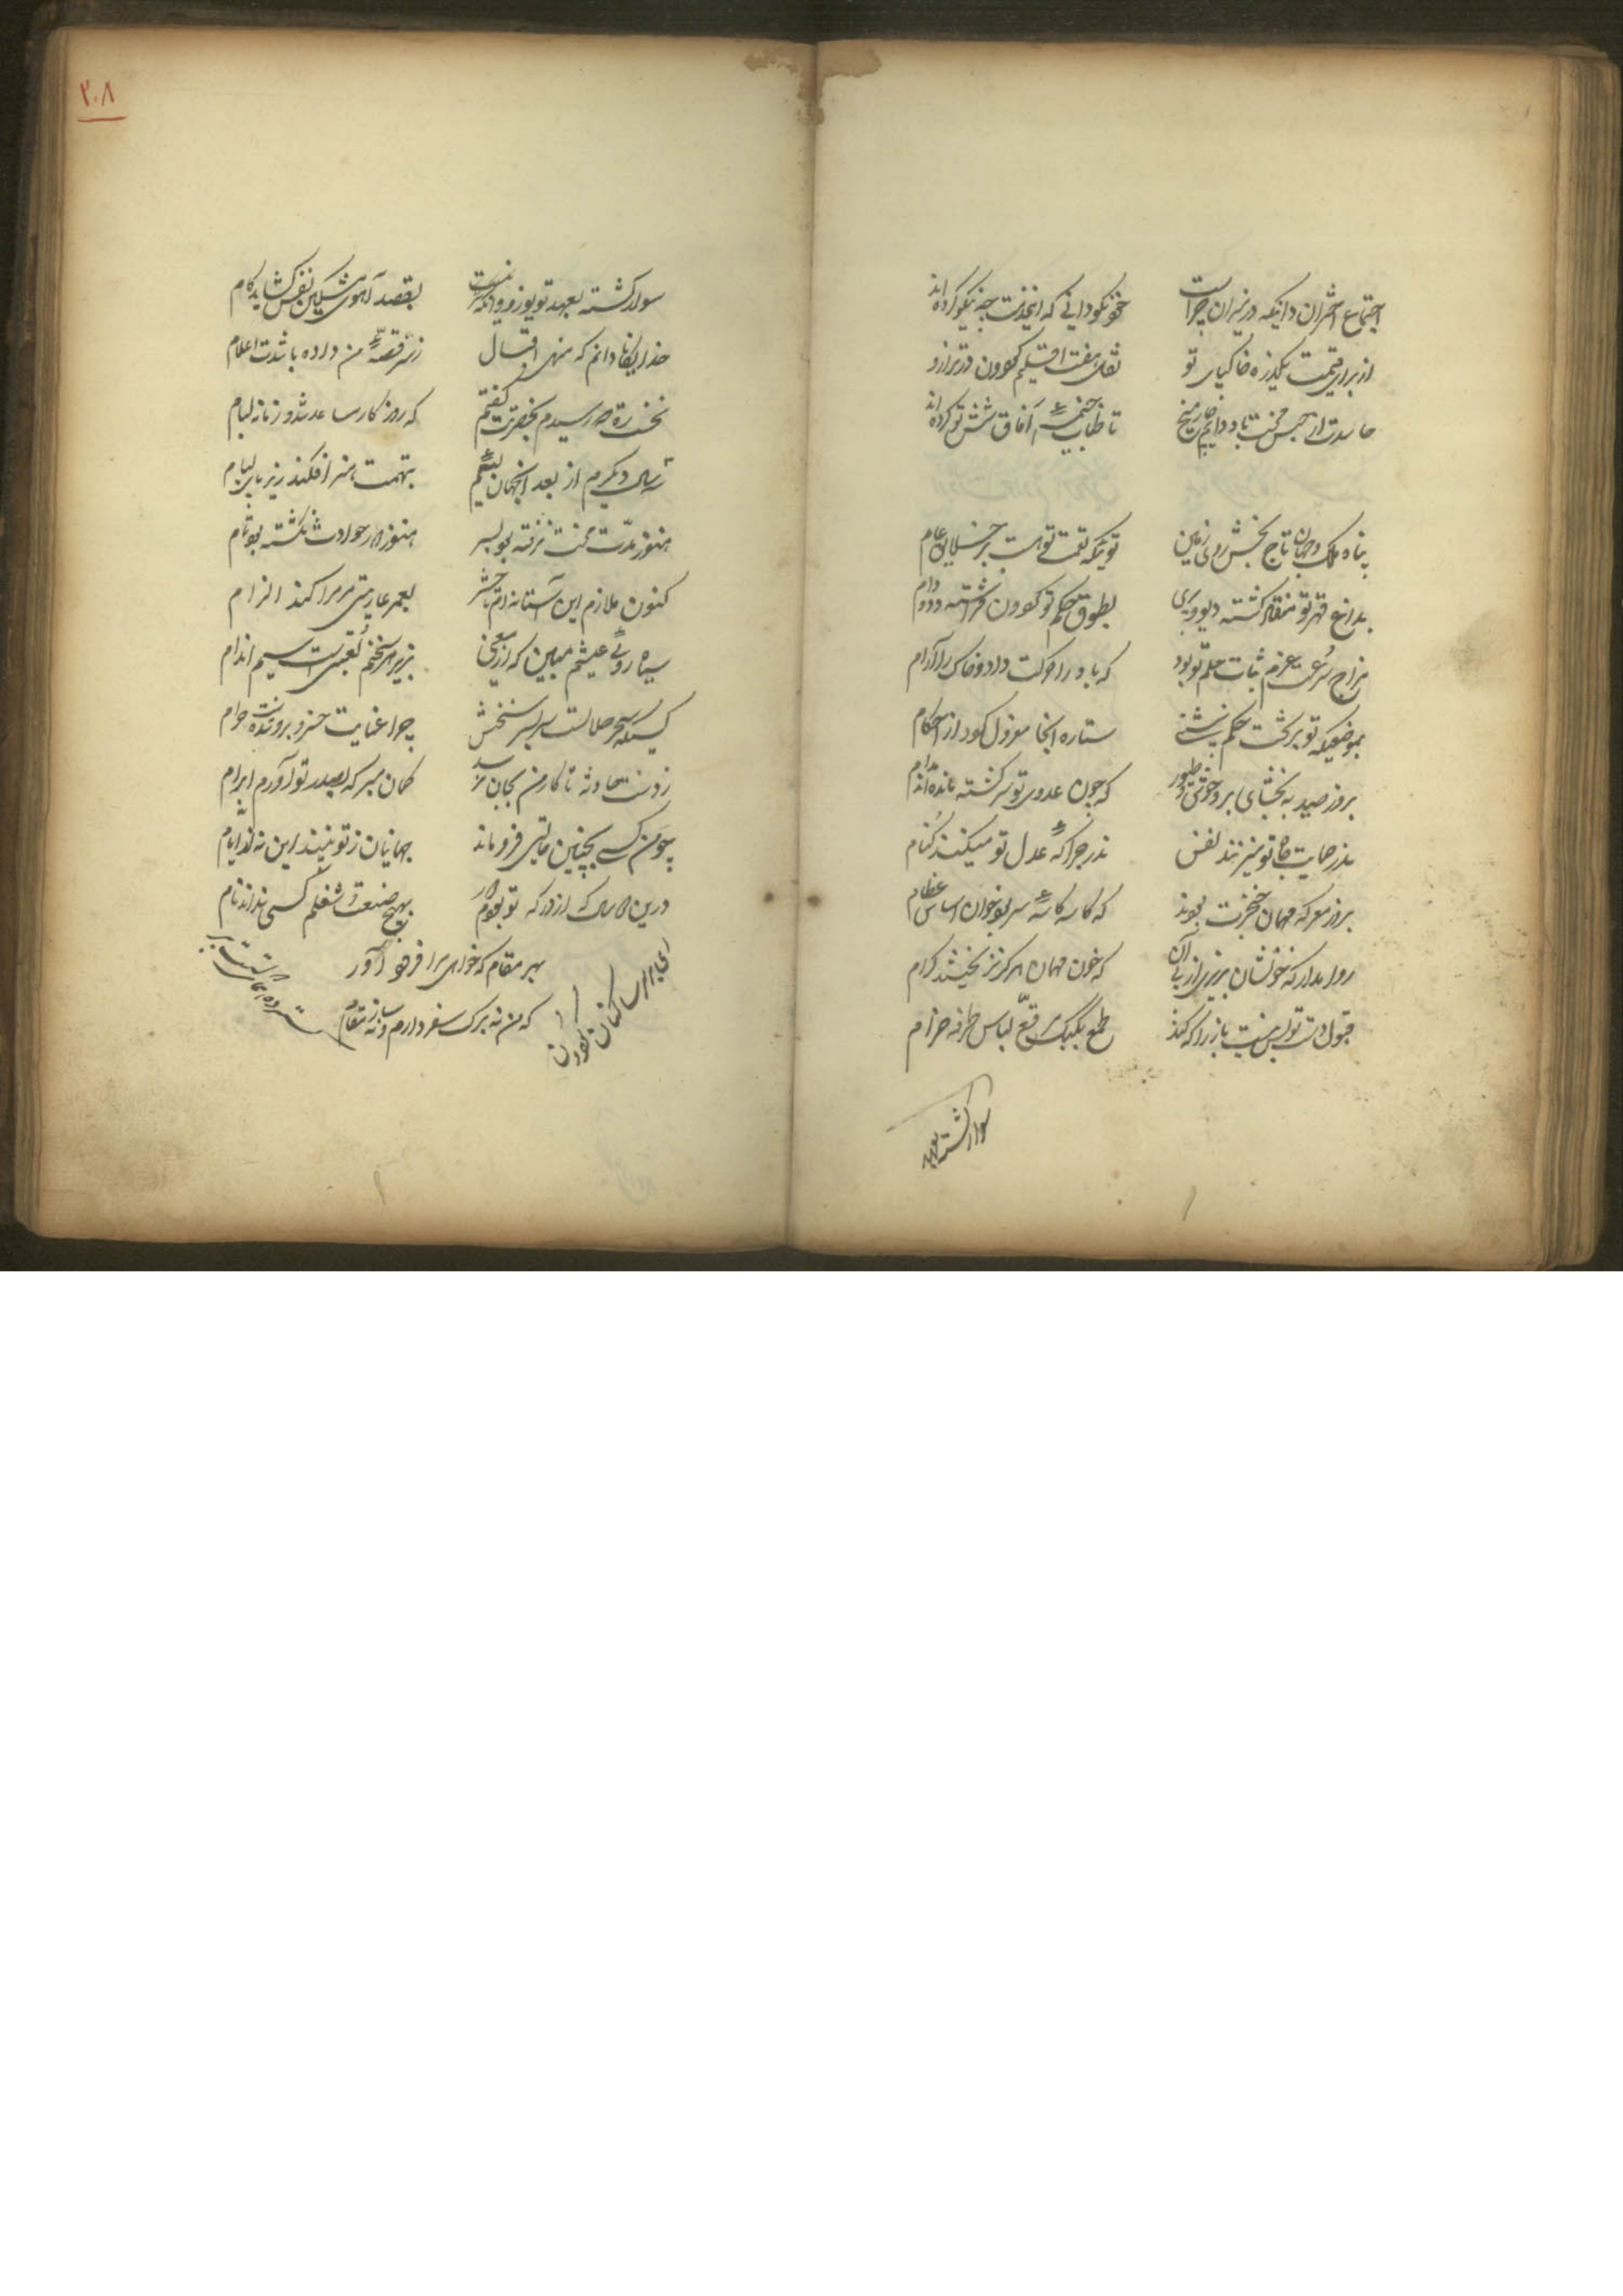 اجتماع اختران دانیکه در میزان چراست خود نکو دانی که این خدمت چه نیکو کرده اند
از برای قیمت یکذره خاکپای تو نقد هفت اقلیم گردون در ترازو
حاسدت از حبس محنت تا خیمه آفاق شش تو کرده اند
پناه ملک و جهان تاج بخش روی زمین توئیکه نعمت تو هست بر خلایق عام
بداغ قهر تو منقاد گشته دیو و پری بطوق حکم تو گردون فراشته دد و دام
مزاج سرعت عزم ثبات حلم تو بود که باد را حرکت داد و خاک را آرام
بموضعیکه تو بر تخت حکم بنشینی ستاره آنجا معزول گردد از احکام
بروز صید ببخشای بر وحوش و طیور که چون عدوی تو سرگشته مانده اند مدام
بدر حمایت جاه تو میزنند نفس بدر چراگه عدل تو میکنند کنام
بروز معرکه مهمان خنجرت بودند که کاسه کاسه سر بود خوان اساس عظام
روا مدار که خونشان بریزی از پی آن که خون مهمان هرگز نریختند کرام
قبول دست تو بس نیست باز را که کند طمع بکبک مرقع لباس طرفه خرام
سوار گشته بعهد
۲۰۸
سوار گشته بعهد تو یوز و وانگه نیست بقصد آهوی مشکین نفس گشاید کام
خدایگانا دانم که منهی اقبال ز سر قصه من داده باشدت اعلام
نخست ره چو رسیدم بحضرتت گفتم که روزگار مساعد شد و زمانه بکام
دیگرم از بعد آنجهان بتهمت هنر افکند زیر پای لیام
هنوز مدت محنت نرفته بود بسر هنوز دور حوادث نگشته بود تمام
کنون ملازم این آستانه ام تا حشر بعمر عاریتی گر مرا کند الزام
سیاه روئی عیشم مبین که از معنی بزیر هر سخنم لعبتی است سیم اندام
کسیکه سحر حلالست سربسر سخنش چرا عنایت خسرو برو شده است حرام
ز دست حادثه تا کار من بجان نرسد گمان مبر که بصدر تو آورم ابرام
چو من کسی بچنین حالتی فرو ماند جهانیان ز تو بینند این نه از ایام
درین دو سال که از درگه تو بودم دور بهیچ صنعت و شغلم کسی نداند نام
بهر مقام که خواهی مرا فرود آور
که من نه برگ سفر دارم و نه ساز مقام
ای برابر ساکنان گردون